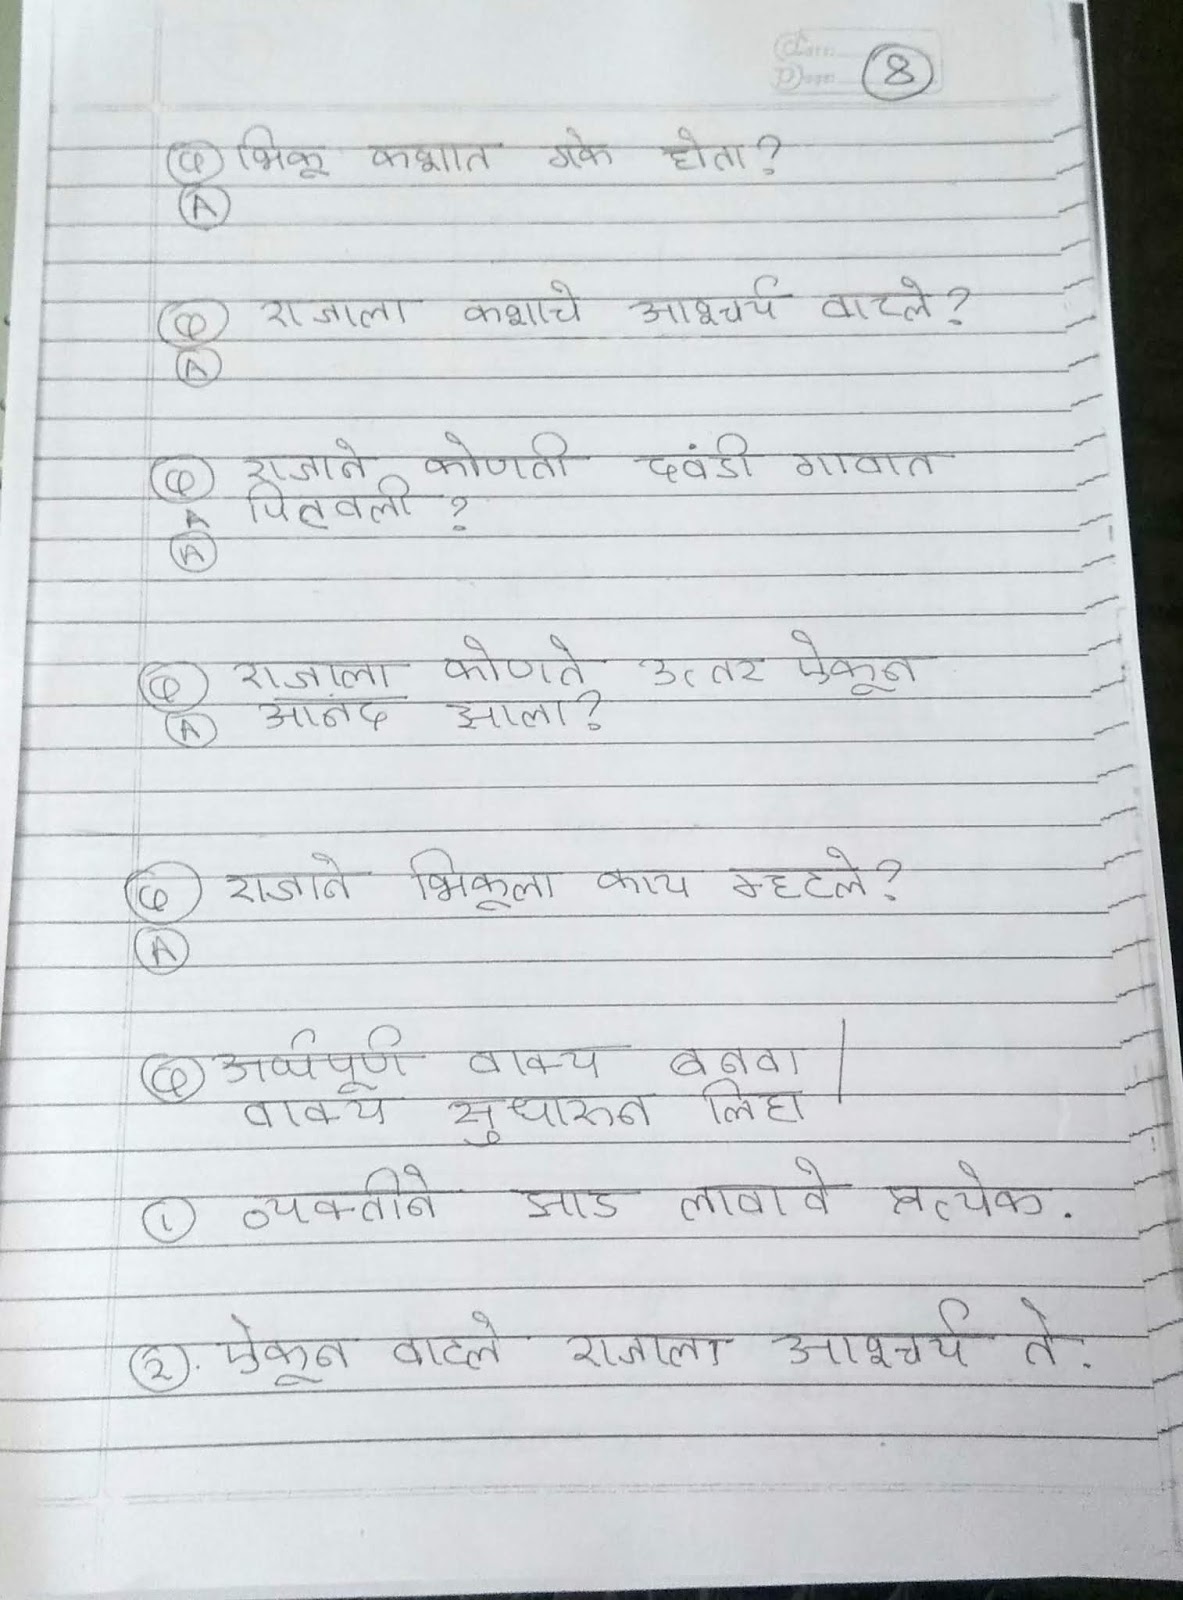 8
Q भिकू कशात गर्क होता?
A
Q राजाला कशाचे आश्चर्य वाटले?
A
Q राजाने कोणती दवंडी गावात
A पिटवली?
A
Q राजाला कोणते उत्तर ऐकून
A आनंद झाला?
Q राजाने भिकूला काय म्हटले?
A
Q अर्थपूर्ण वाक्य बनवा /
वाक्य सुधारून लिहा
१ व्यक्तीने झाड लावावे प्रत्येक.
२. ऐकून वाटले राजाला आश्चर्य ते.